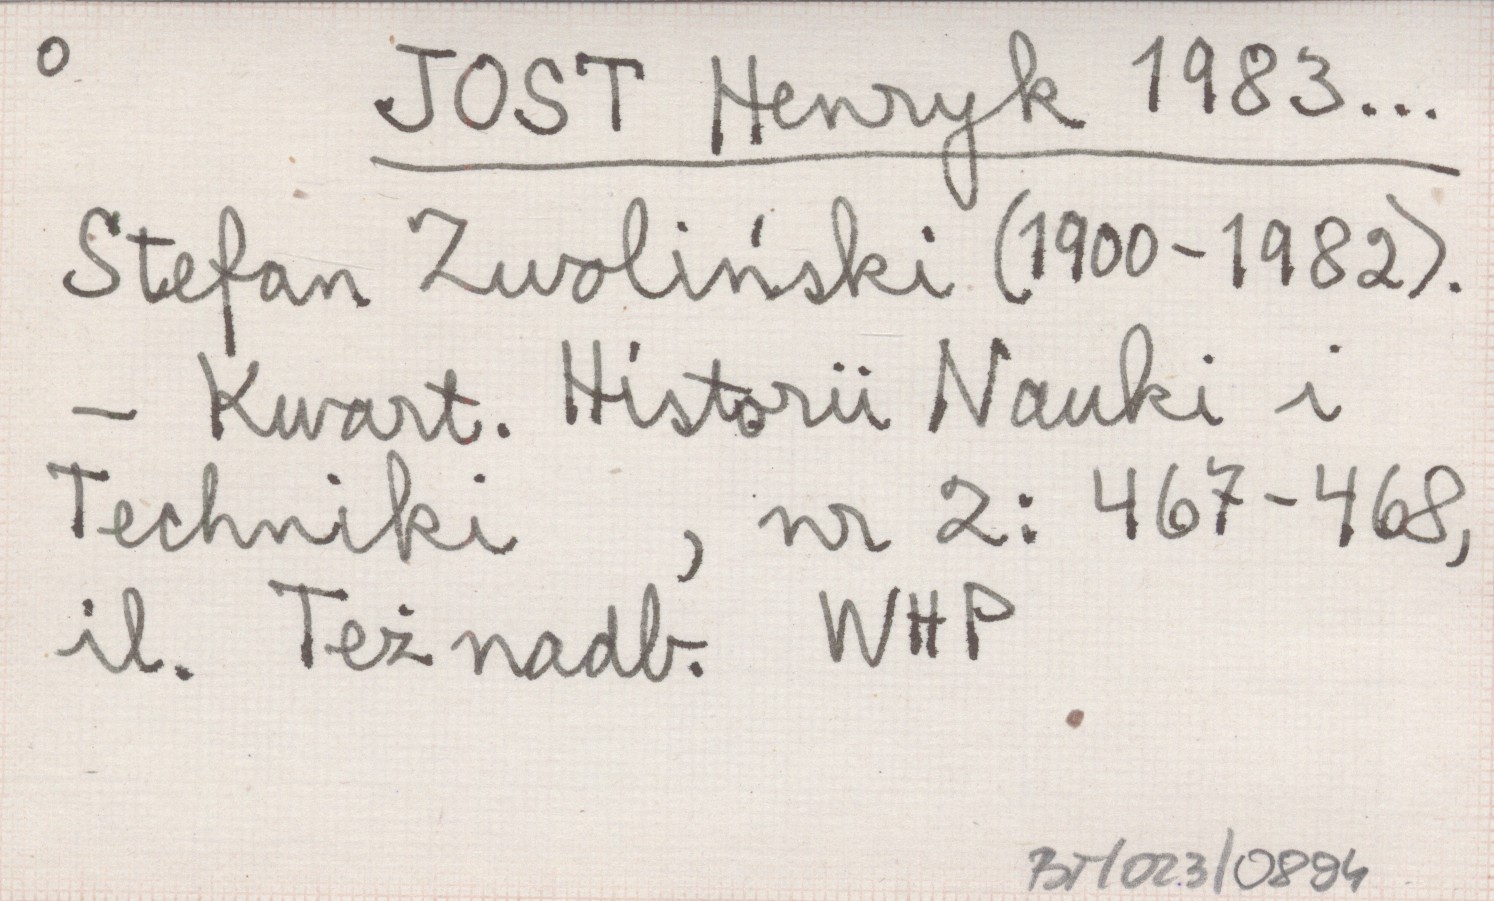 o JOST Henryk 1983...
Stefan Zwoliński (1900-1982).
- Kwart. Historii Nauki i
Techniki , nr 2: 467-468,
il. Też nadb. WHP
BT/023/0894